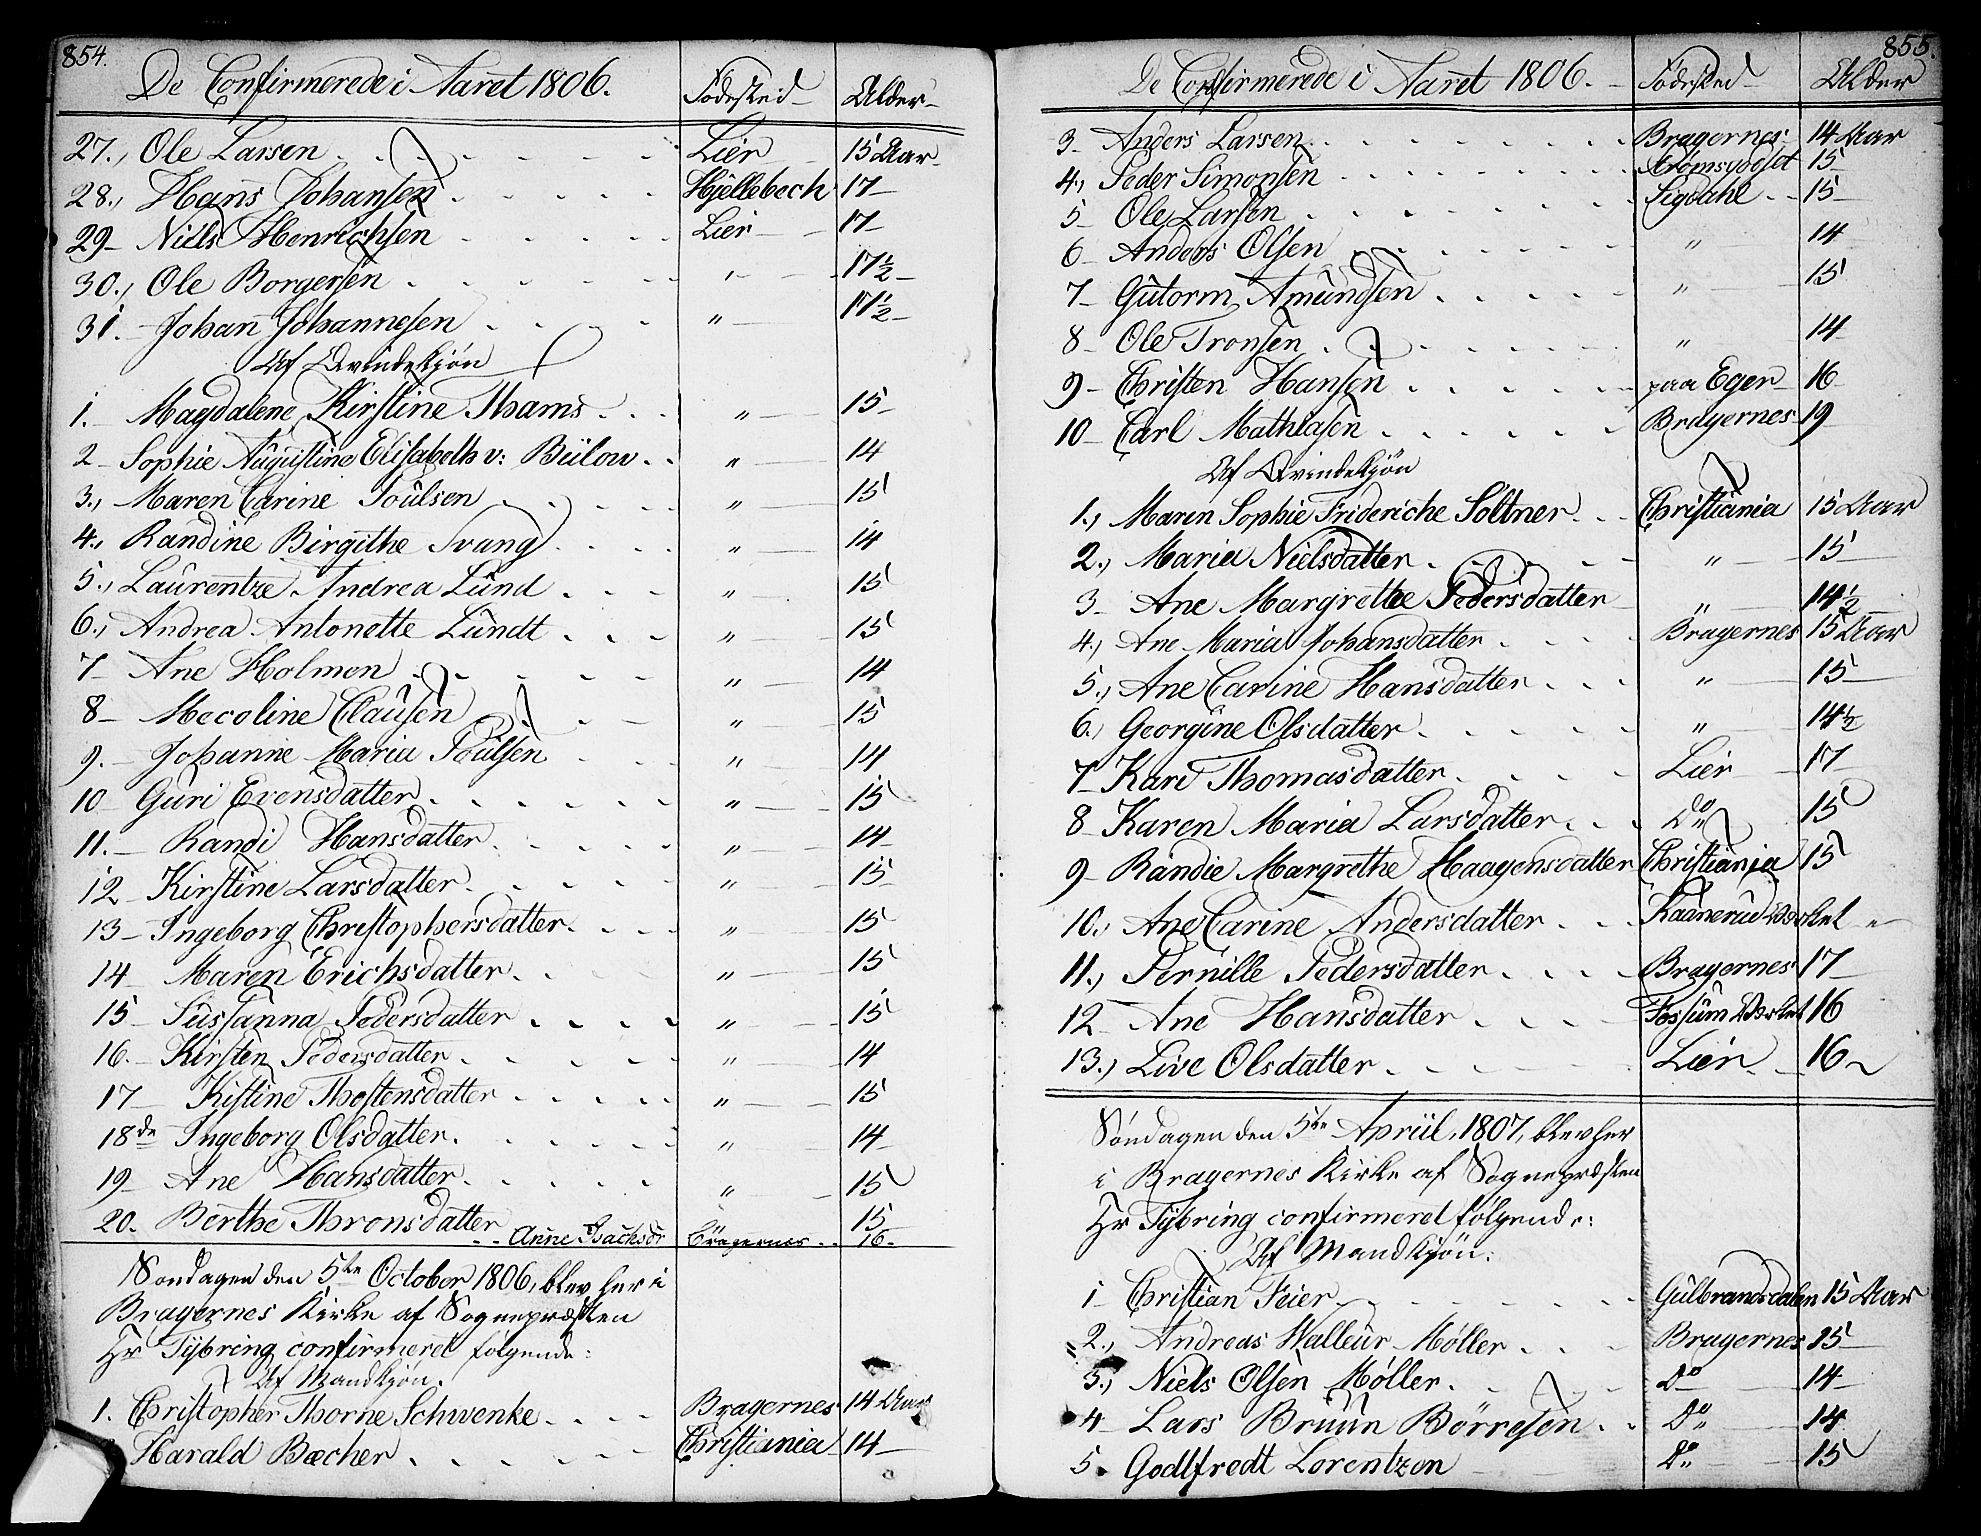 854.
De Confirmerede i Aaret 1806. Fødested Alder
27., Ole Larsen Lier 15 Aar
28., Hans Johansen Hjellebech 17
29 Niels Henrichsen Lier 17
30., Ole Borgersen " 17 1/2
31. Johan Johannesen " 17 1/2
Af Qvindekjøn
1. Magdalene Kirstine Thams " 15
2 Sophie Augustine Elisabeth v: Bülow " 14
3., Maren Carine Poulsen " 15
4., Randine Birgithe Svang " 14
5., Laurentze Andrea Lund " 15
6., Andrea Antonette Lundt " 15
7 Ane Holmen " 14
8 Mecoline Clausen " 15
9. Johanne Maria Poulsen " 14
10 Guri Evensdatter " 15
11. Randi Hansdatter " 14
12 Kirstine Larsdatter " 15
13 Ingeborg Christophersdatter " 15
14 Maren Erichsdatter " 15
15 Sussanna Pedersdatter " 15
16. Kirsten Pedersdatter " 14
17 Kistine Thostensdatter " 15
18de Ingeborg Olsdatter " 14
19 Ane Hansdatter " 15
20. Berthe Thronsdatter " 15
Anne Isachsdr Bragernes 16
Søndagen den 5te October 1806, blev her i
Bragernes Kirke af Sognepræsten
Hr Tybring confirmeret følgende:
Af Mandkjøn.
1. Christopher Thorne Schwenke Bragernes 14 Aar
Harald Bæcher Christiania 14
855.
De Confirmerede i Aaret 1806. Fødested Alder
3 Anders Larsen Bragernes 14 Aar
4., Peder Simonsen Strømsgodset 15
5 Ole Larsen Sigdahl 15
6 Anders Olsen " 14
7 Gutorm Amundsen " 15
8 Ole Tronsen " 14
9 Christen Hansen paa Eger 16
10 Carl Mathiasen Bragernes 19
Af Qvindekjøn
1., Maren Sophie Frideriche Søltner Christiania 15 Aar
2., Maria Nielsdatter " 15
3 Ane Margrethe Pedersdatter " 14 1/2
4., Ane Maria Johansdatter Bragernes 15 Aar
5., Ane Carine Hansdatter " 15
6., Georgine Olsdatter " 14 1/2
7 Kari Thomasdatter Lier 17
8 Karen Maria Larsdatter Do 15
9 Randie Margrethe Haagensdatter Christiania 15
10., Ane Carine Andersdatter "
11., Pernille Pedersdatter Bragernes 17
12 Ane Hansdatter Fossum Værket 16
13., Live Olsdatter Lier 16
Søndagen den 5te Apriil, 1807, blev her
i Bragernes Kirke af Sognepræsten
Hr Tybring confirmeret følgende:
Af Mandkjøn:
1 Christian Feier Gulbrandsdalen 15 Aar
2., Andreas Walleur Møller Bragernes 15
3., Niels Olsen Møller Do 14
4 Lars Bruun Børresen Do 14
5. Godtfredt Lorentzen Do 15